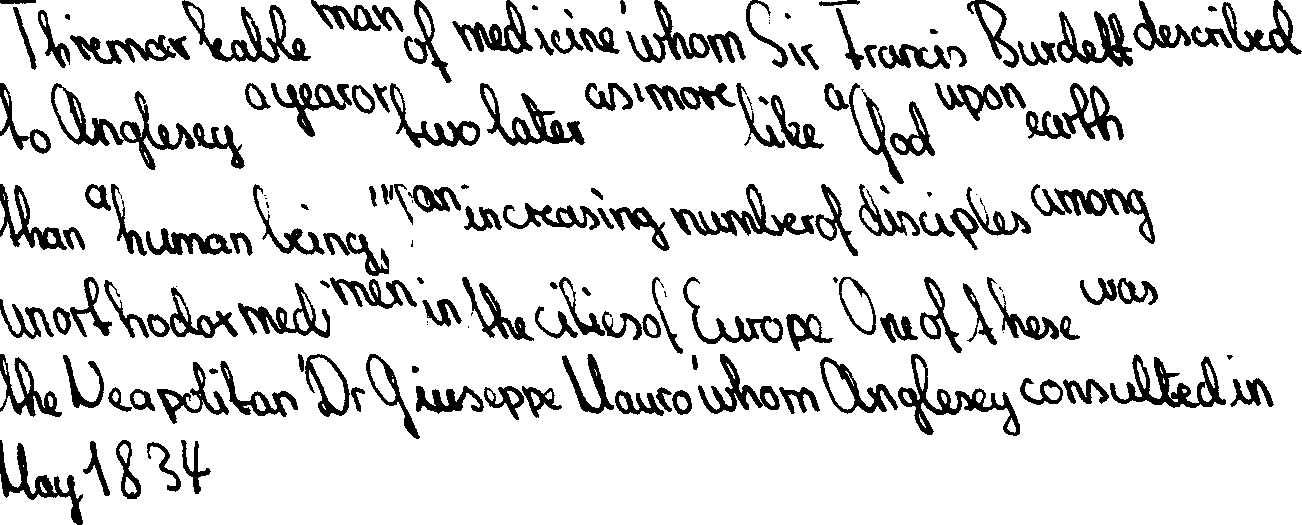 Thremarkable man of medicine whom Sir Francis Burdett described
to Anglesey a year or two later as 'more like a God upon earth
than a human being," an increasing number of disciples among
unorthodox med men in the cities of Europe One of these was
the Neapolitan Dr Giuseppe Mauro whom Anglesey consulted in
May 1834